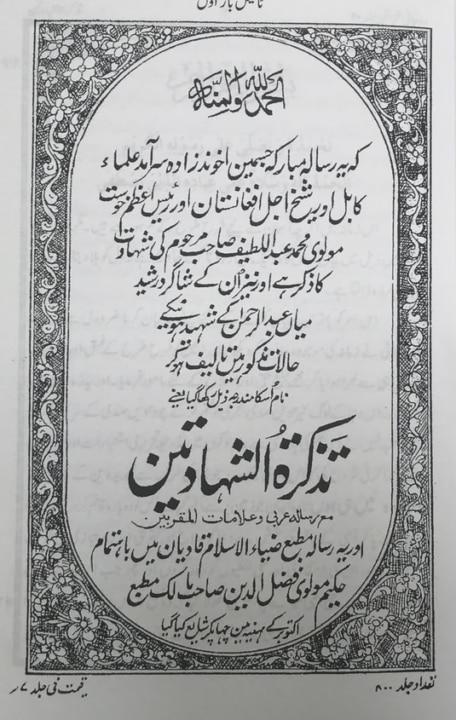 ٹائیٹل بار اول
الحمد للہ والمنہ
کہ یہ رسالہ مبارکہ جسمیں اخوندزادہ سرآمد علماء
کابل اور شیخ اجل افغانستان اور رئیس اعظم خوست
مولوی محمد عبد اللطیف صاحب مرحوم کی شہادت
کا ذکر ہے اور نیز ان کے شاگرد رشید
میاں عبد الرحمٰن کے شہید ہونیکے
حالات مذکور ہیں تالیف ہو کر
نام اسکا مندرجہ ذیل رکھا گیا یعنے
تذکرۃ الشہادتین
معہ رسالہ عربی و علامات المقربین
اور یہ رسالہ مطبع ضیاء الاسلام قادیان میں باہتمام
حکیم مولوی فضل الدین صاحب مالک مطبع
اکتوبر کے مہینہ میں چھاپکر شایع کیا گیا
تعداد جلد ۸۰۰
قیمت فی جلد ۷؍